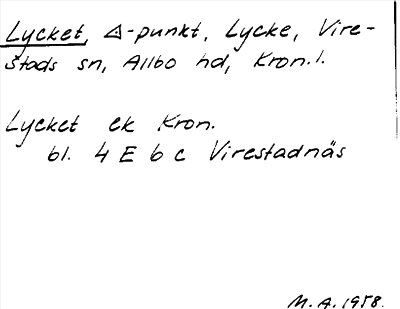 Lycket, △-punkt, Lycke, Vire-
stads sn, Allbo hd, Kron.l.
Lycket ek Kron.
bl. 4 E b c Virestadnäs
M.A. 1958.